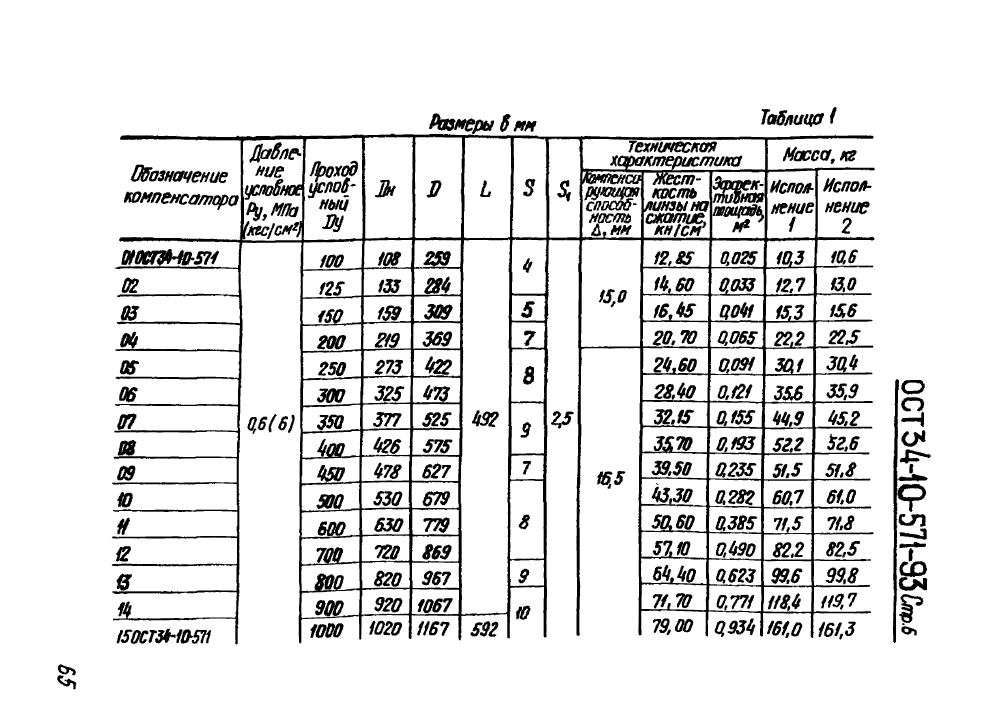 Размеры в мм
Таблица 1
Обозначение компенсатора
Давле-
ние
условное
Ру, МПа
(кгс/см²)
Проход
услов-
ный
Ду
Дн
D
L
S
S₁
Техническая
характеристика
Компенси-
рующая
способ-
ность
Δ, мм
Жест-
кость
линзы на
сжатие,
кн/см
Эффек-
тивная
площадь,
м²
Масса, кг
Испол-
нение
1
Испол-
нение
2
01 ОСТ34-10-571 0,6(6) 100 108 259 492 4 2,5 15,0 12,85 0,025 10,3 10,6
02 125 133 284 14,60 0,033 12,7 13,0
03 150 159 309 5 16,45 0,041 15,3 15,6
04 200 219 369 7 20,70 0,065 22,2 22,5
05 250 273 422 8 16,5 24,60 0,091 30,1 30,4
06 300 325 473 28,40 0,121 35,6 35,9
07 350 377 525 9 32,15 0,155 44,9 45,2
08 400 426 575 35,70 0,193 52,2 52,6
09 450 478 627 7 39,50 0,235 51,5 51,8
10 500 530 679 8 43,30 0,282 60,7 61,0
11 600 630 779 50,60 0,385 71,5 71,8
12 700 720 869 57,10 0,490 82,2 82,5
13 800 820 967 9 64,40 0,623 99,6 99,8
14 900 920 1067 10 71,70 0,771 118,4 119,7
15 ОСТ34-10-571 1000 1020 1167 592 79,00 0,934 161,0 161,3
ОСТ 34-10-571-93 Стр.6
65